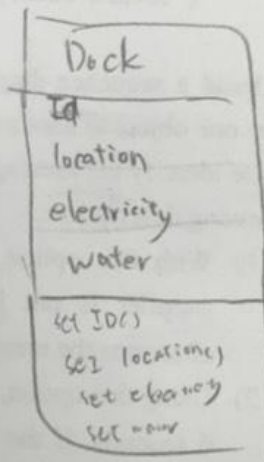 Dock
Id
location
electricity
water
set ID()
set location()
set
set